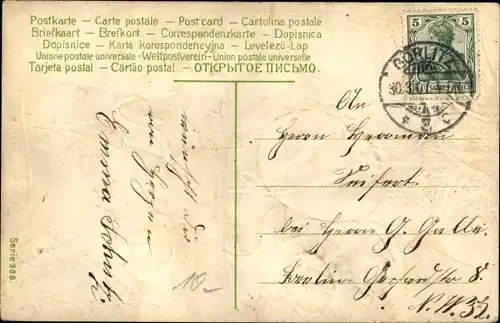 Postkarte – Carte postale – Post card – Cartolina postale
Briefkaart – Brefkort – Correspondenzkarte – Dopisnica
Dopisnice – Karta korespondencyjna – Levelező-Lap
Unione postale universale - Weltpostverein - Union postale universelle
Tarjeta postal – Cartão postal – ОТКРЫТОЕ ПИСЬМО.
5 5
GÖRLITZ
30.3
C
An
Herrn Herrman
Seifert.
bei Herrn G. Galle
Berlin Gerhardstr 8.
N.W. 52.
wünscht Dir
von Herzen
Emma
10-
Serie 308.